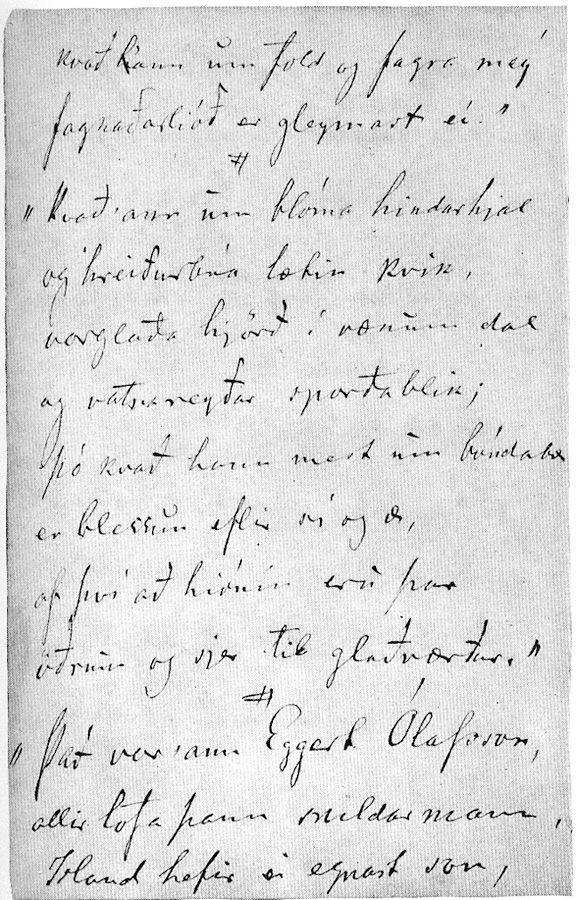 kvað hann um fold og fagra mey
fagnaðarljóð er gleymast ei."
#
"Kvað 'ann um blóma hindarhjal
og hreiðurbúa lætin kvik,
vorglaða hjörð í vænum dal
og vatnareyðar sporðablik;
þó kvað hann mest um bóndabæ
er blessun eflir sí og æ,
af því að hjónin eru þar
öðrum og sjer til glaðværðar."
#
"Það var 'ann Eggert Ólafsson,
allir lofa þann snildarmann,
Ísland hefir ei eignast son,